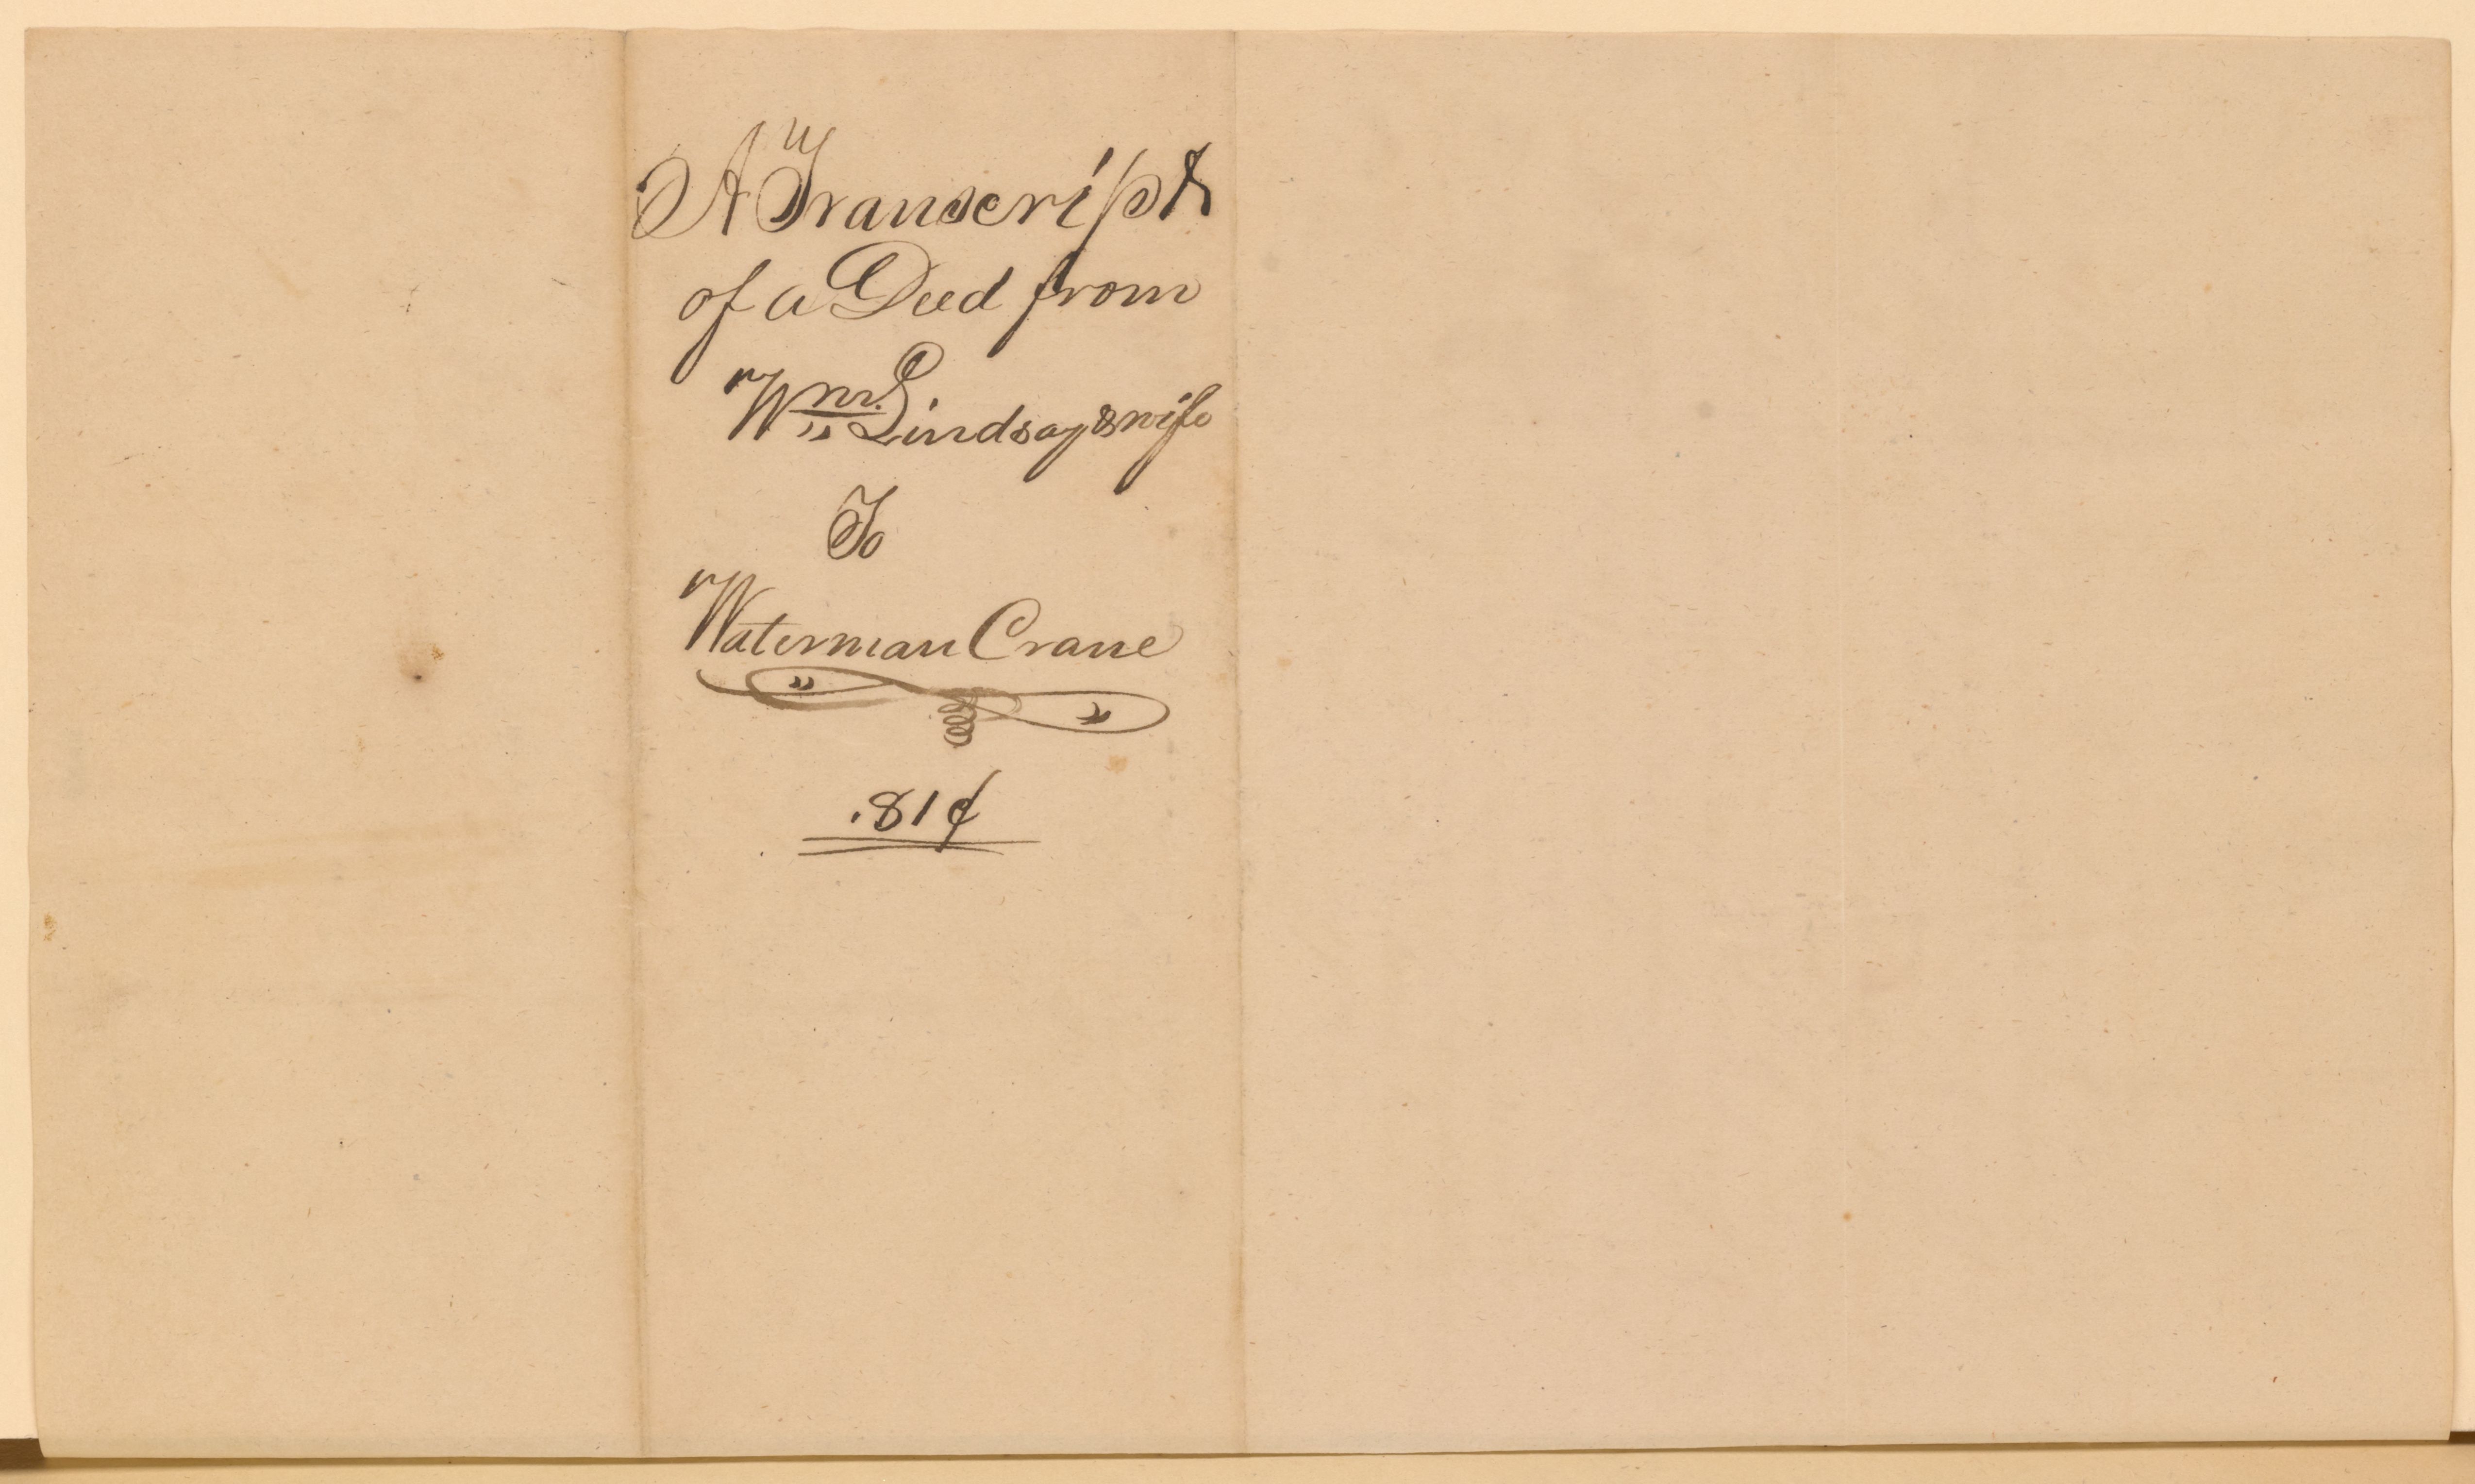 A Transcript
of a Deed from
Wm. Lindsay & wife
To
Waterman Crane
.81¢